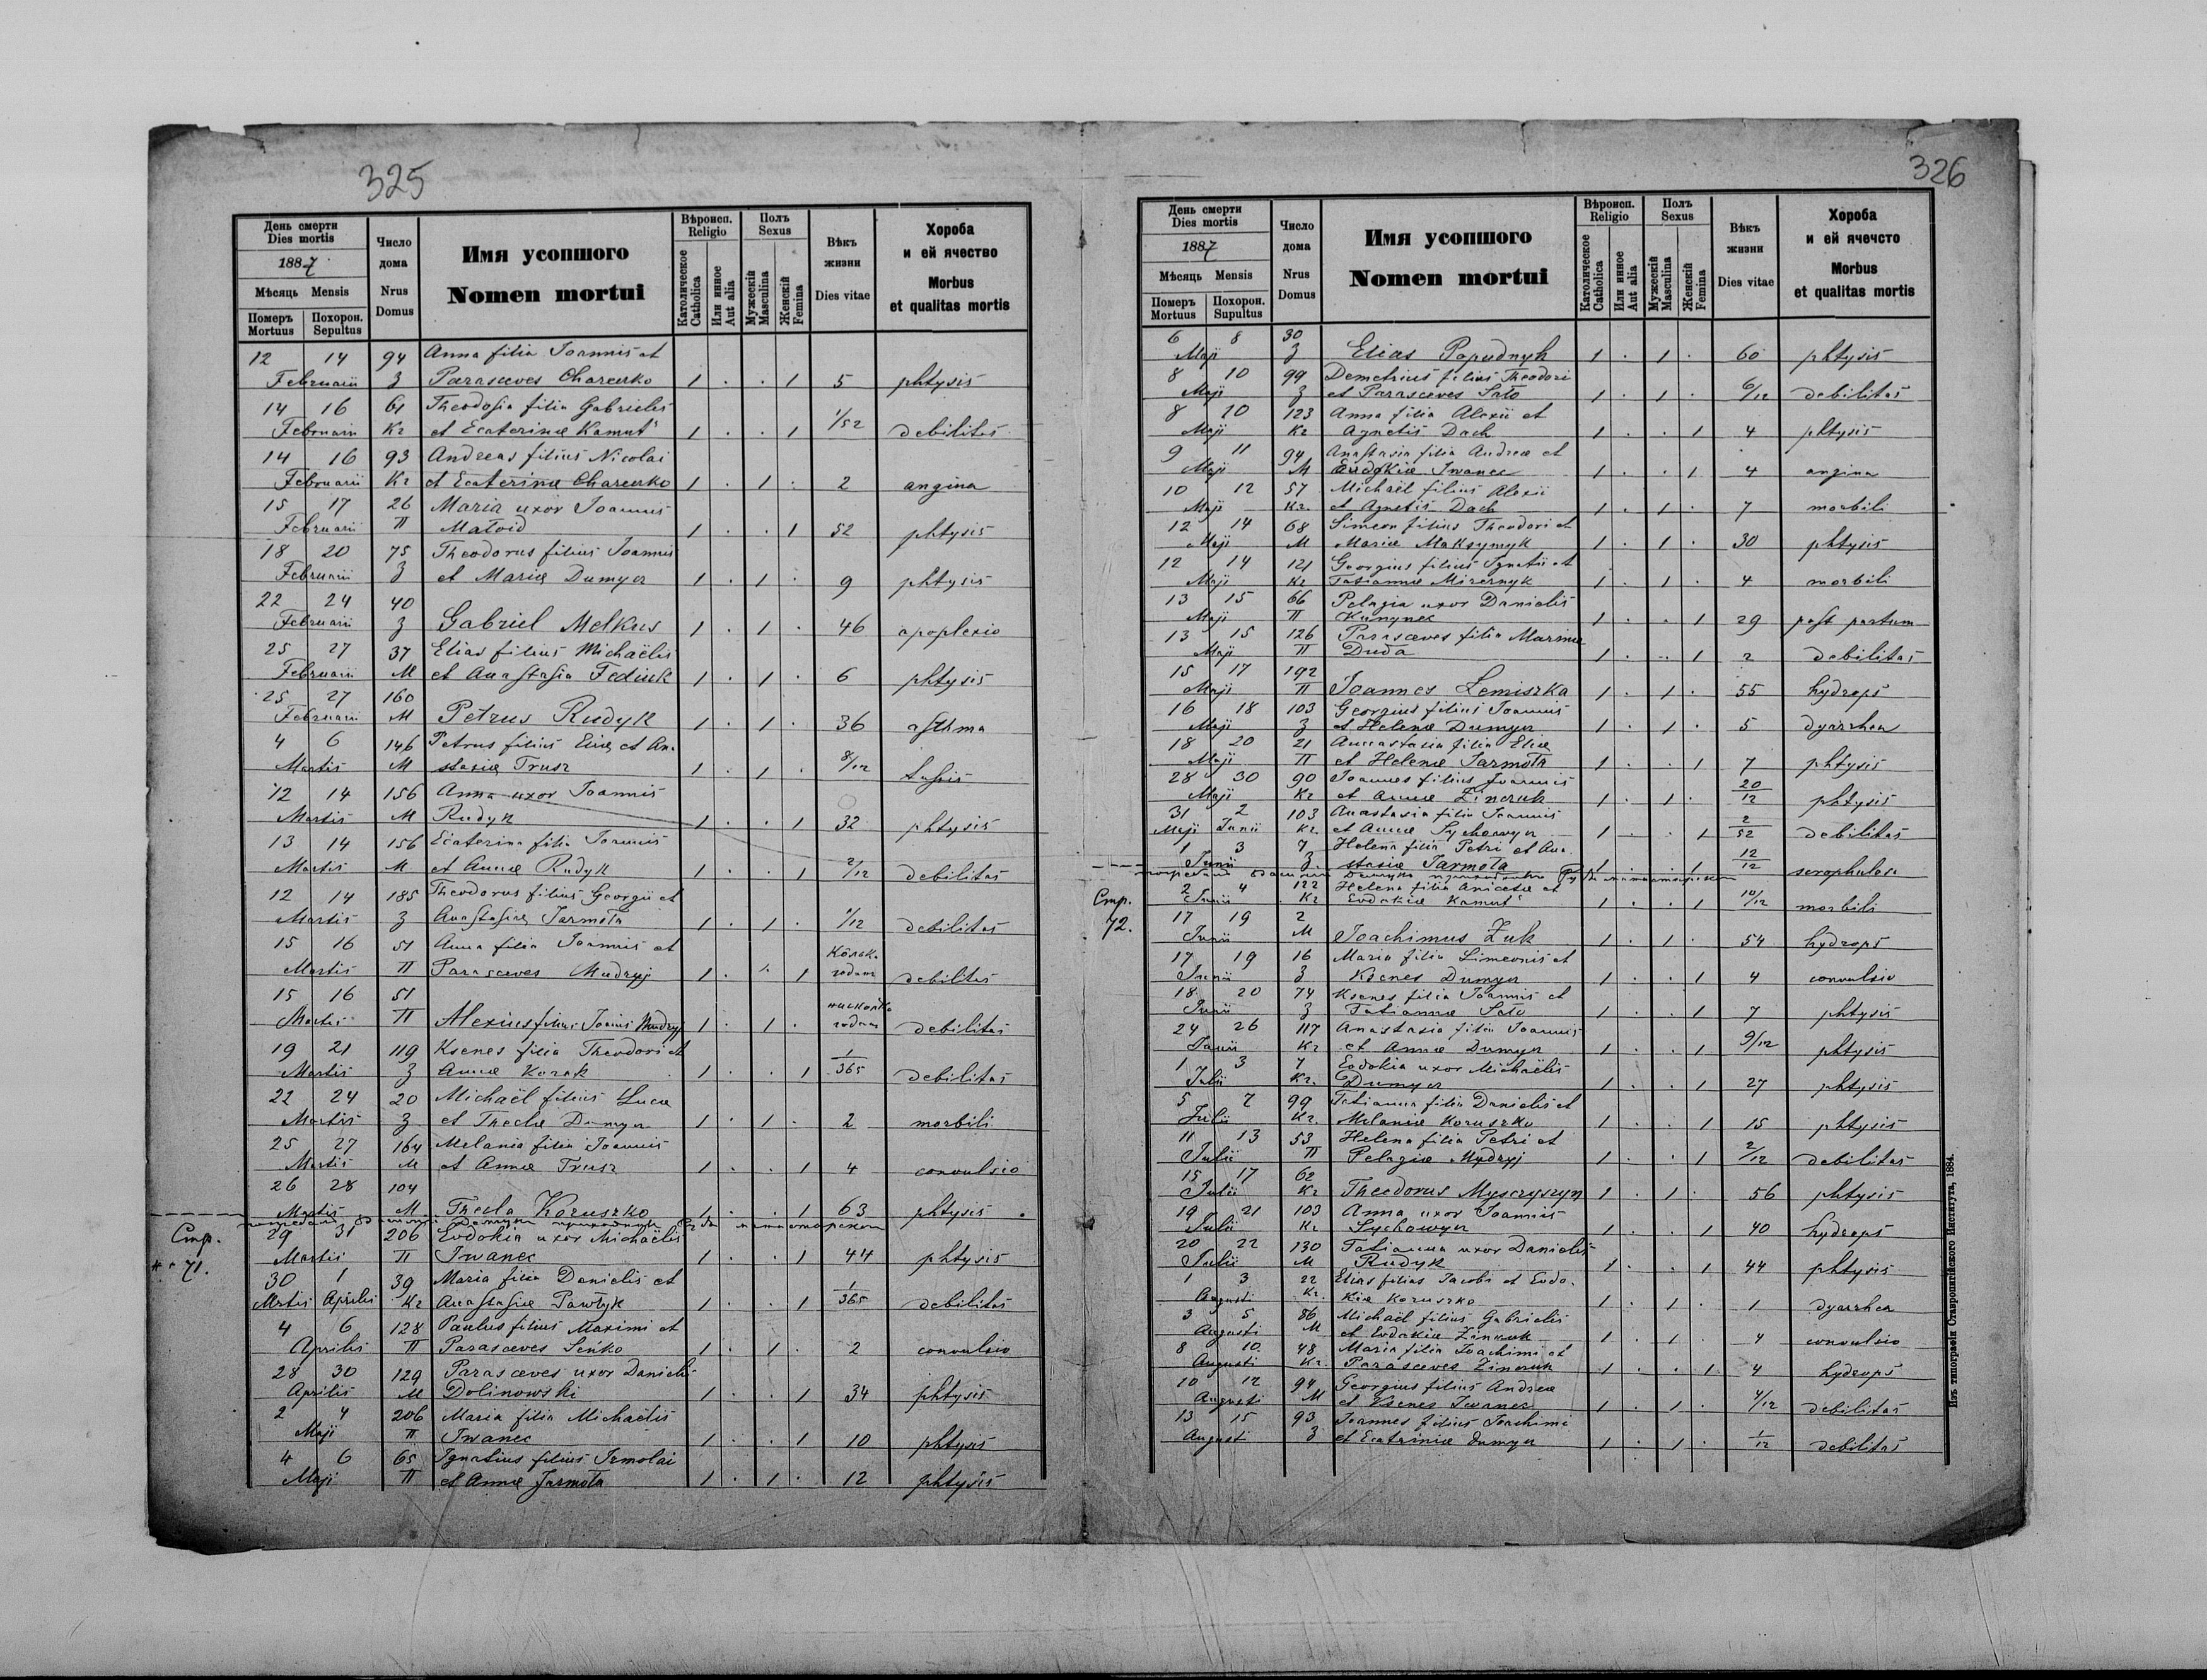 325
День смерти
Dies mortis
1887
Мѣсяць Mensis
Померъ Mortuus
Похорон. Sepultus
Число дома
Nrus Domus
Имя усопшого
Nomen mortui
Вѣроисп. Religio
Католическое Catholica
Или инное Aut alia
Полъ Sexus
Мужескій Masculina
Женскій Femina
Вѣкъ жизни
Dies vitae
Хороба
и ей ячество
Morbus
et qualitas mortis
12 14 94 Anna filia Joannis et
Februarii З Parasceves Charcurko 1 . . 1 5 phtysis
14 16 61 Theodosia filia Gabrielis
Februarii Кг et Ecaterinæ Kamut' 1 . . 1 1/52 debilitas
14 16 93 Andreas filius Nicolai
Februarii Кг et Ecaterinæ Charcurko 1 . 1 . 2 angina
15 17 26 Maria uxor Joannis
Februarii П Matoid 1 . . 1 52 phtysis
18 20 75 Theodorus filius Joannis
Februarii З et Mariæ Dumyn 1 . 1 . 9 phtysis
22 24 40
Februarii З Gabriel Melkus 1 . 1 . 46 apoplexio
25 27 37 Elias filius Michaëlis
Februarii М et Anastasia Fediuk 1 . 1 . 6 phtysis
25 27 160
Februarii М Petrus Rudyk 1 . 1 . 36 asthma
4 6 146 Petrus filius Eliæ et An-
Martis М stasiæ Trusz 1 . 1 . 8/12 tussis
12 14 156 Anna uxor Joannis
Martis М Rudyk 1 . . 1 32 phtysis
13 14 156 Ecaterina filia Joannis
Martis М et Annæ Rudyk 1 . . 1 2/12 debilitas
12 14 185 Theodorus filius Georgii et
Martis З Anastasiæ Jarmoła 1 . 1 . 1/12 debilitas
15 16 51 Anna filia Joannis et
Martis П Parasceves Mudryj 1 . . 1 годин debilitas
15 16 51
Martis П Alexius filius Joannis Mudryj 1 . 1 . годин debilitas
19 21 119 Ksenes filia Theodori et
Martis З Annæ Korak 1 . . 1 1/365 debilitas
22 24 20 Michaël filius Lucæ
Martis З et Theclæ Dumyn 1 . 1 . 2 morbili
25 27 164 Melania filia Joannis
Martis М et Annæ Trusz 1 . . 1 4 convulsio
26 28 104
Martis М Thecla Koruszko 1 . . 1 63 phtysis
Стр.
71.
29 31 206 Eudokia uxor Michaëlis
Martis П Iwanec 1 . . 1 44 phtysis
30 1 39 Maria filia Danielis et
Martis Aprilis Кг Anastasiæ Pawłyk 1 . . 1 1/365 debilitas
4 6 128 Paulus filius Maximi et
Aprilis П Parasceves Seńko 1 . 1 . 2 convulsio
28 30 129 Parasceves uxor Danielis
Aprilis М Dolinowski 1 . . 1 34 phtysis
2 4 206 Maria filia Michaëlis
Maji П Iwanec 1 . . 1 10 phtysis
4 6 65 Ignatius filius Irmolai
Maji П et Annæ Jarmoła 1 . 1 . 12 phtysis
326
День смерти
Dies mortis
1887
Мѣсяць Mensis
Померъ Mortuus
Похорон. Supultus
Число дома
Nrus Domus
Имя усопшого
Nomen mortui
Вѣроисп. Religio
Католическое Catholica
Или инное Aut alia
Полъ Sexus
Мужескій Masculina
Женскій Femina
Вѣкъ жизни
Dies vitae
Хороба
и ей ячечсто
Morbus
et qualitas mortis
6 8 30
Maji З Elias Popudnyk 1 . 1 . 60 phtysis
8 10 99 Demetrius filius Theodori
Maji З et Parasceves Sato 1 . 1 . 6/12 debilitas
8 10 123 Anna filia Alexii et
Maji Кг Agnetis Dach 1 . . 1 4 phtysis
9 11 94 Anastasia filia Andreæ et
Maji М Eudokiæ Iwanec 1 . . 1 4 angina
10 12 57 Michaël filius Alexii
Maji Кг. et Agnetis Dach 1 . 1 . 7 morbili
12 14 68 Simeon filius Theodori et
Maji М Mariæ Maksymyk 1 . 1 . 30 phtysis
12 14 121 Georgius filius Ignatii et
Maji Кг Tatiannæ Mizernyk 1 . 1 . 4 morbili
13 15 66 Pelagia uxor Danielis
Maji П Kunynec 1 . . 1 29 post partum
13 15 126 Parasceves filia Marinæ
Maji П Duda 1 . . 1 2 debilitas
15 17 192
Maji П Joannes Lemiszka 1 . 1 . 55 hydrops
16 18 103 Georgius filius Joannis
Maji З et Helenæ Dumyn 1 . 1 . 5 dyarrhea
18 20 21 Annastasia filia Eliæ
Maji П et Helenæ Jarmoła 1 . . 1 7 phtysis
28 30 90 Joannes filius Joannis
Maji Кг et Annæ Zinczuk 1 . 1 . 20/12 phtysis
31 2 103 Anastasia filia Joannis
Maji Junii Кг. et Annæ Sychowyn 1 . . 1 2/52 debilitas
1 3 7 Helena filia Petri et Ana-
Junii З. stasiæ Jarmoła 1 . . 1 12/12 scrophulosa
Стр.
72.
2 4 122 Helena filia Anicetæ et
Junii Кг Eudokiæ Kamut' 1 . . 1 10/12 morbili
17 19 2
Junii М Joachimus Żuk 1 . 1 . 54 hydrops
17 19 16 Maria filia Simeonis et
Junii З Ksenes Dumyn 1 . . 1 4 convulsio
18 20 74 Ksenes filia Joannis et
Junii З Tatiannæ Sato 1 . . 1 7 phtysis
24 26 117 Anastasia filia Joannis
Junii Кг et Annæ Dumyn 1 . . 1 9/12 phtysis
1 3 7 Eudokia uxor Michaëlis
Julii Кг. Dumyn 1 . . 1 27 phtysis
5 7 99 Tatianna filia Danielis et
Julii Кг. Melaniæ Koruszko 1 . . 1 15 phtysis
11 13 53 Helena filia Petri et
Julii П Pelagiæ Mydryj 1 . . 1 2/12 debilitas
15 17 62
Julii Кг Theodorus Myszczyszyn 1 . 1 . 56 phtysis
19 21 103 Anna uxor Joannis
Julii Кг Sychowyn 1 . . 1 40 hydrops
20 22 130 Tatianna uxor Danielis
Julii М Rudyk 1 . . 1 44 phtysis
1 3 22 Elias filius Jacobi et Eudo-
Augusti Кг. kiæ Koruszko 1 . 1 . 1 dyarrhea
3 5 86 Michaël filius Gabrielis
Augusti М et Eudokiæ Zinczuk 1 . 1 . 4 convulsio
8 10 48 Maria filia Joachimi et
Augusti Кг. Parasceves Zinczuk 1 . . 1 4 hydrops
10 12 94 Georgius filius Andreæ
Augusti М et Ksenes Iwanec 1 . 1 . 4/12 debilitas
13 15 93 Joannes filius Joachimi
Augusti З et Ecatriniæ Dumyn 1 . 1 . 1/12 debilitas
Изъ типографіи Ставропигійского Института, 1884.